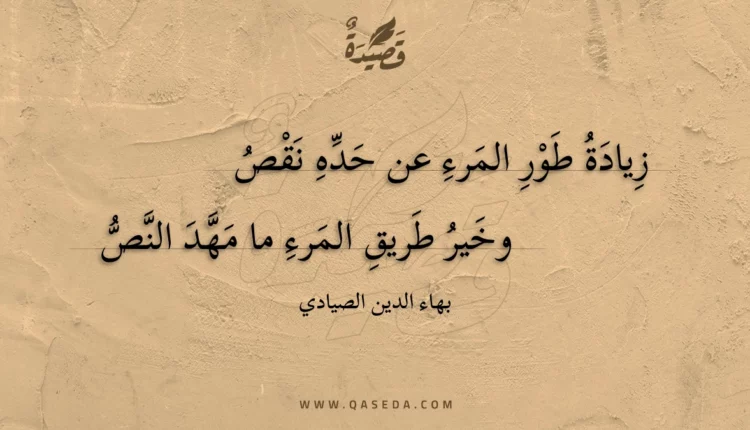 قَصِيْدَةٌ
زِيادَةُ طَوْرِ المَرءِ عن حَدِّهِ نَقْصُ
وخَيرُ طَريقِ المَرءِ ما مَهَّدَ النَّصُّ
بهاء الدين الصيادي
WWW.QASEDA.COM